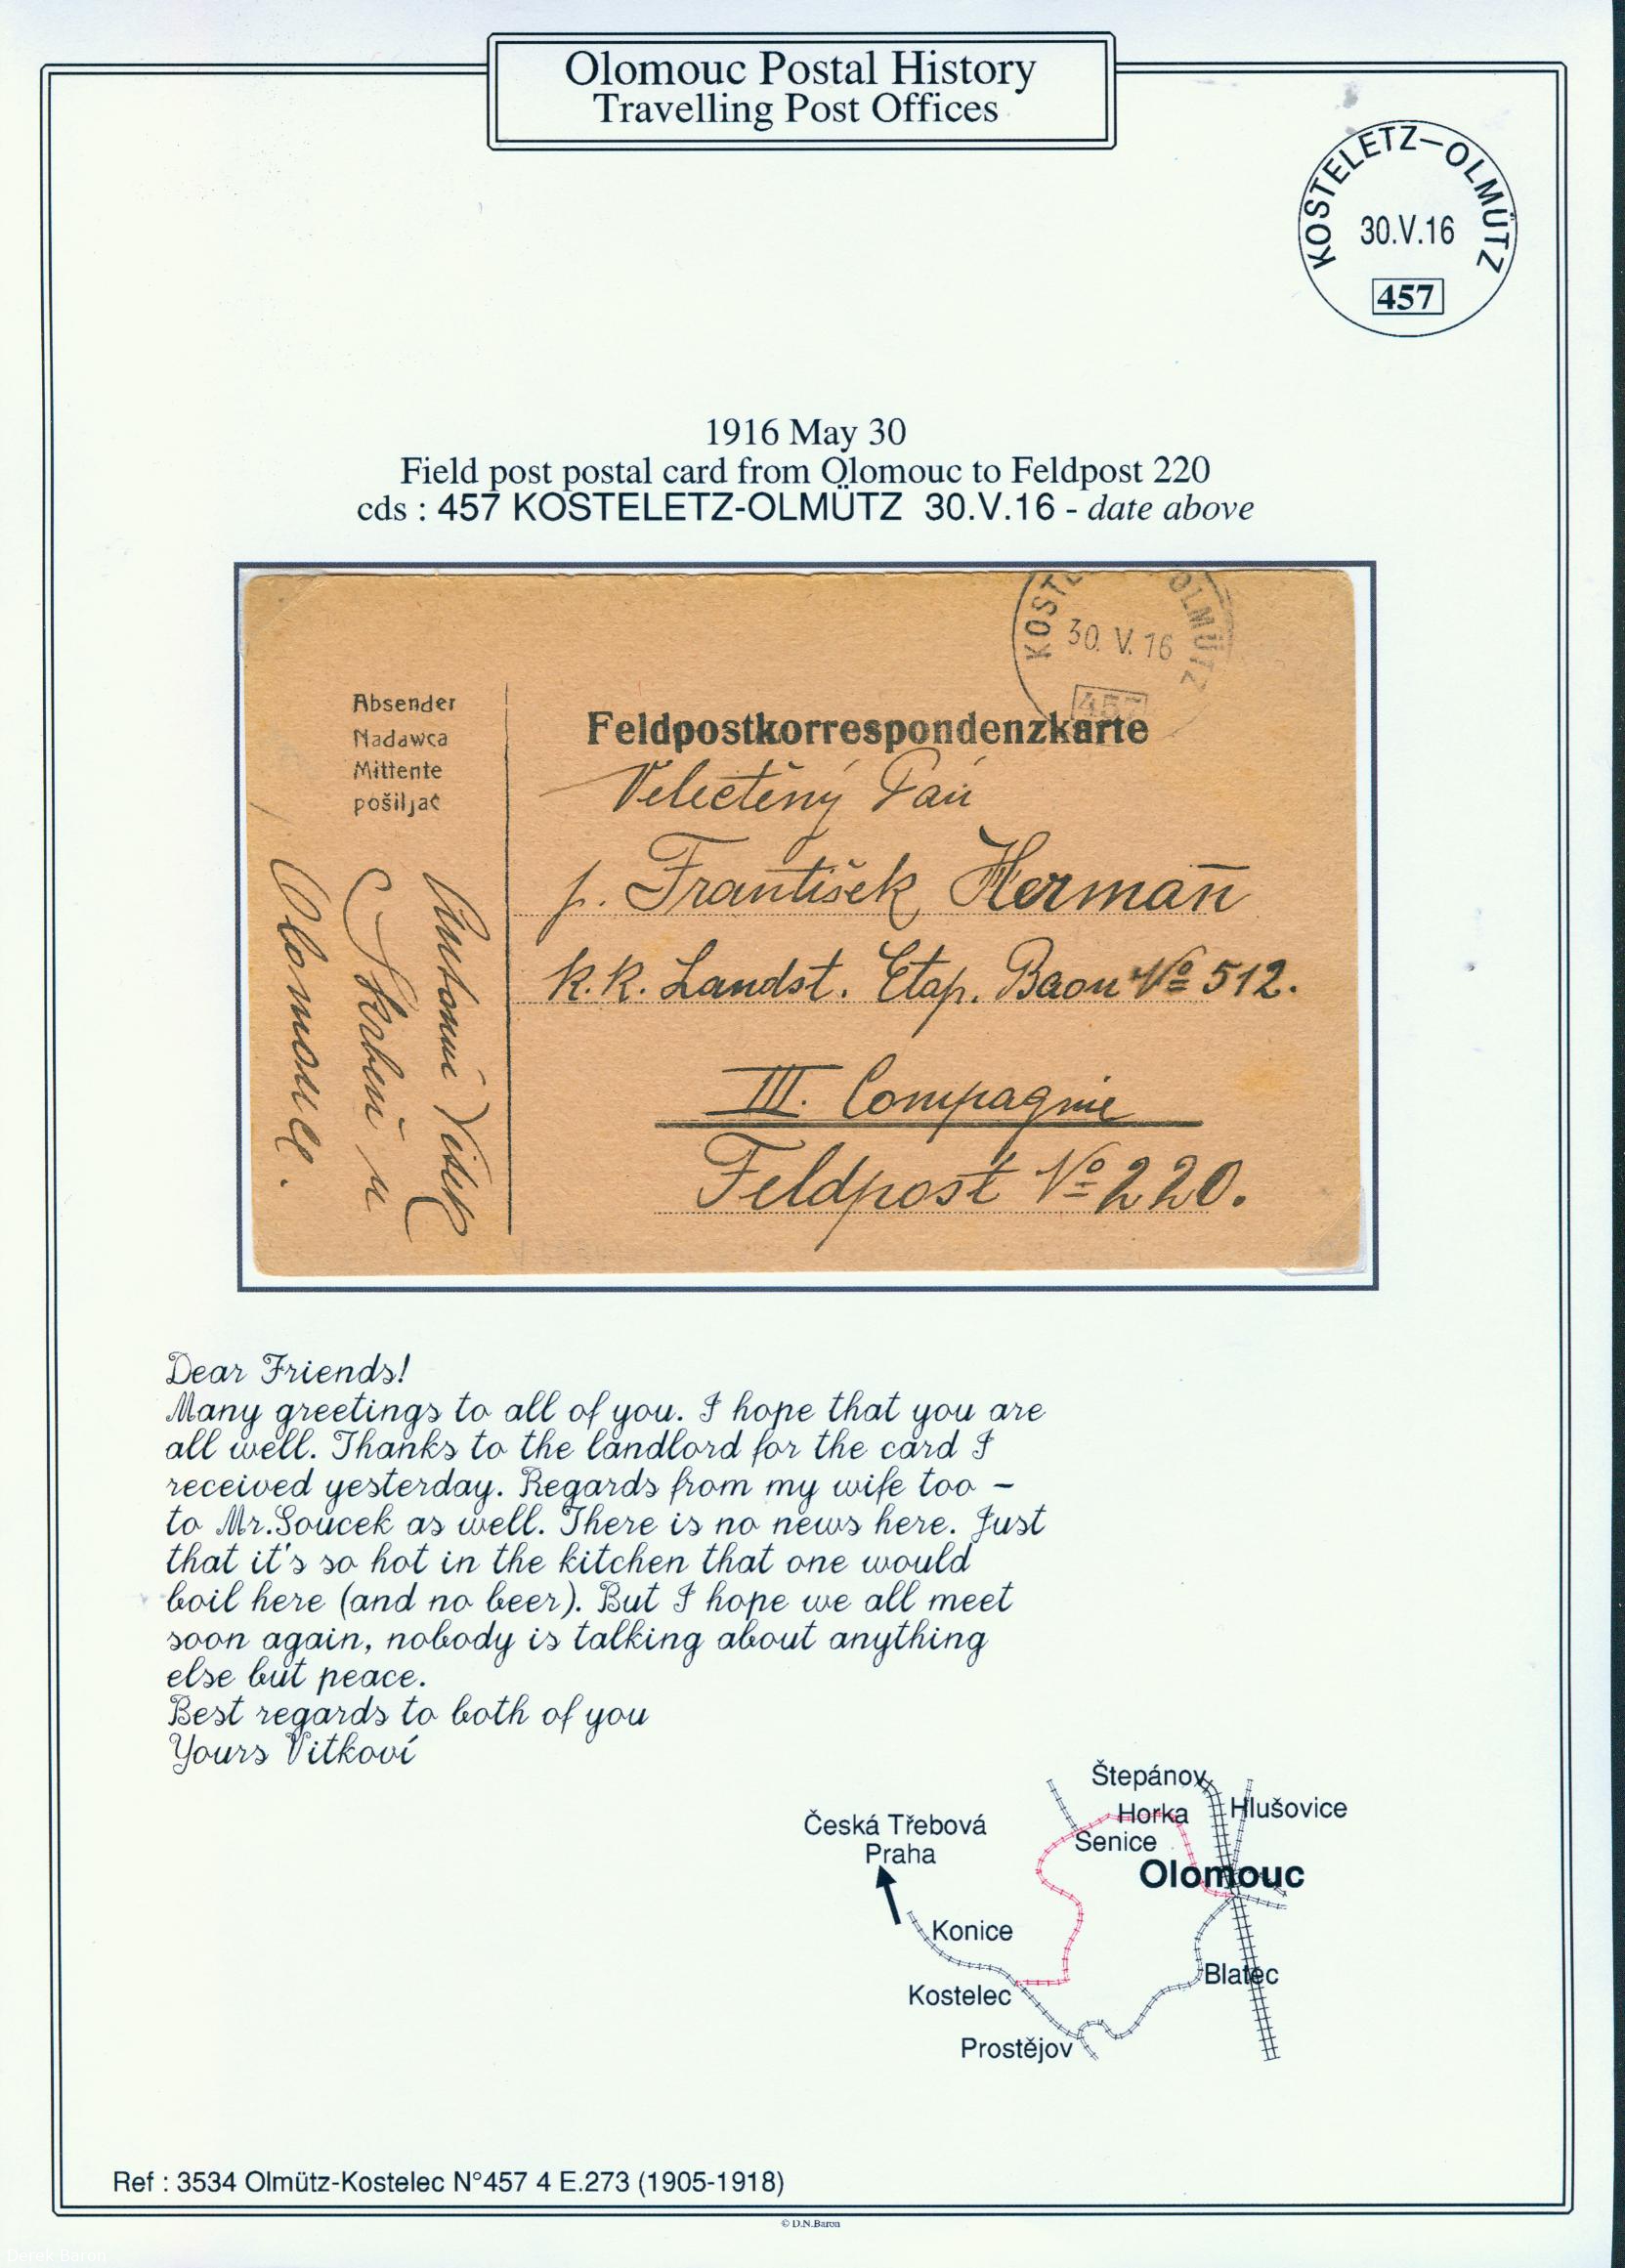 Olomouc Postal History
Travelling Post Offices
KOSTELETZ-OLMÜTZ
30.V.16
457
1916 May 30
Field post postal card from Olomouc to Feldpost 220
cds : 457 KOSTELETZ-OLMÜTZ 30.V.16 - date above
KOSTE OLMÜTZ
30. V. 16
457
Absender
Nadawca
Mittente
pošiljač
Feldpostkorrespondenzkarte
Velectěný Pán
p. František Herman̄
k.k. Landst. Etap. Baon No 512.
III. Compagnie
Feldpost No 220.
Vitek
u
Olomouce.
Dear Friends!
Many greetings to all of you. I hope that you are
all well. Thanks to the landlord for the card I
received yesterday. Regards from my wife too -
to Mr.Soucek as well. There is no news here. Just
that it's so hot in the kitchen that one would
boil here (and no beer). But I hope we all meet
soon again, nobody is talking about anything
else but peace.
Best regards to both of you
Yours Vitkoví
Štepánov
Horka
Hlušovice
Česká Třebová
Praha
Senice
Olomouc
Konice
Blatec
Kostelec
Prostějov
Ref : 3534 Olmütz-Kostelec N°457 4 E.273 (1905-1918)
© D.N.Baron
Derek Baron